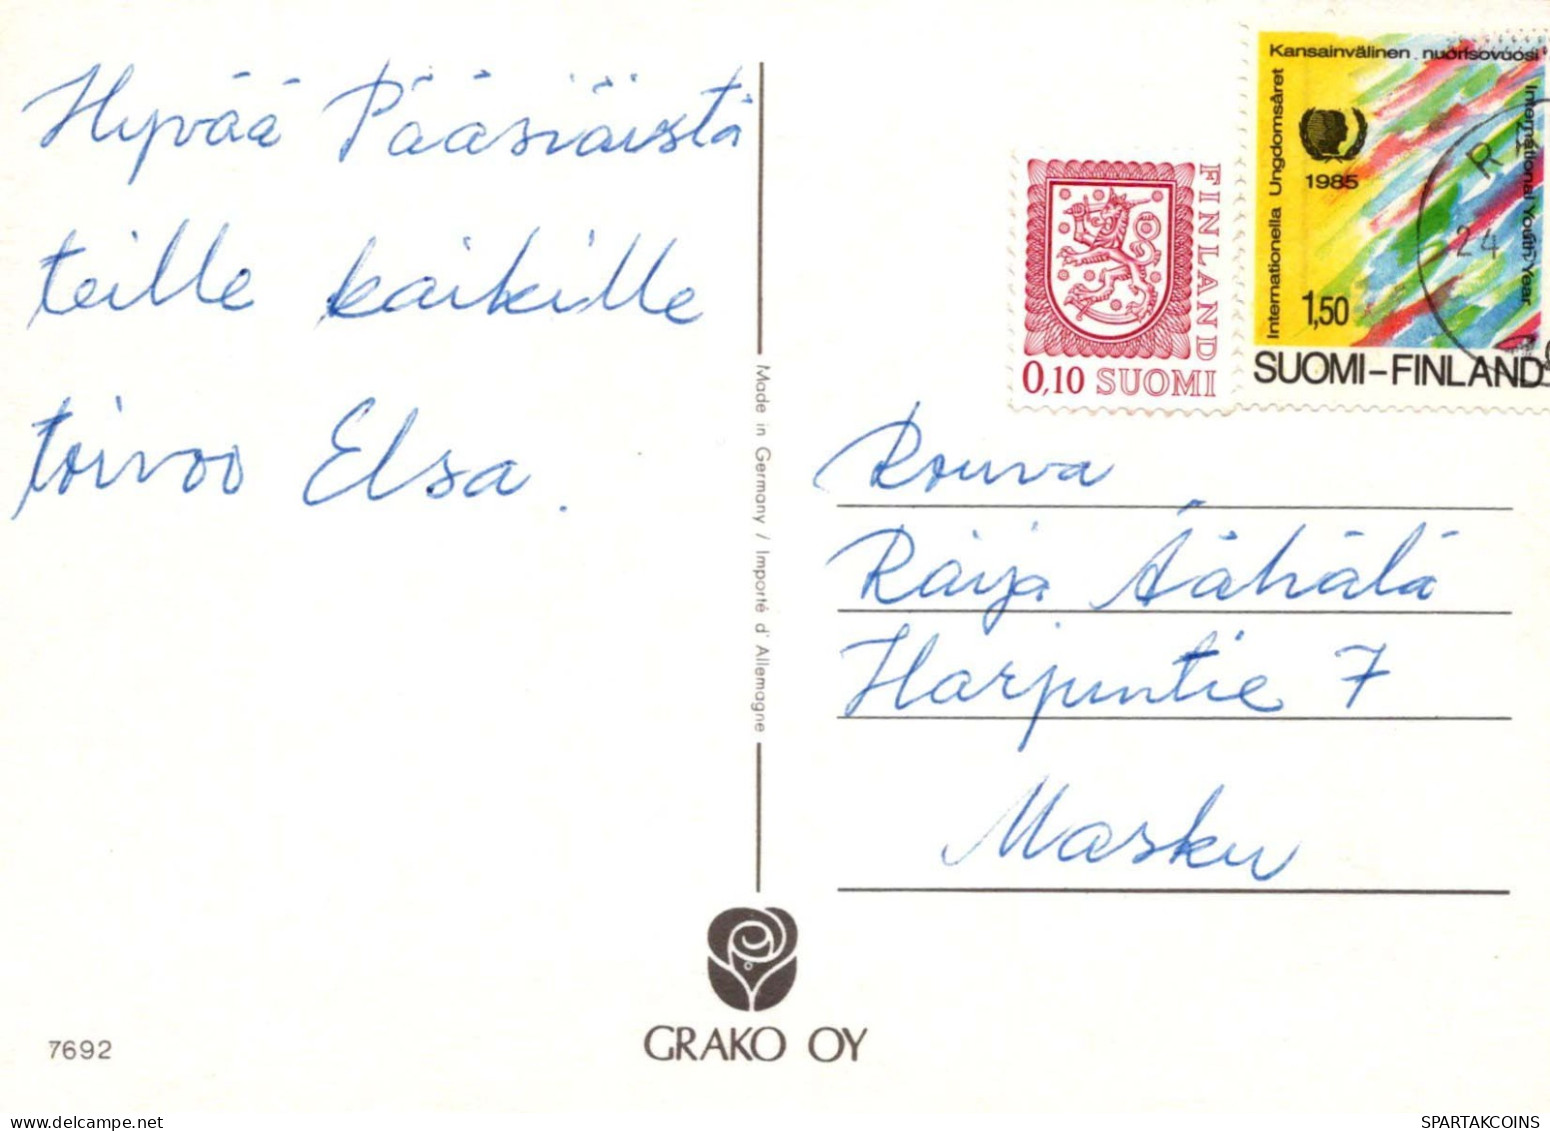 Hyvää Pääsiäistä
teille kaikille
toivoo Elsa.
Made in Germany / Importé d' Allemagne
FINLAND
0,10 SUOMI
Kansainvälinen nuorisovuosi
Internationella Ungdomsåret
International Youth Year
1985
1,50
SUOMI-FINLAND
R
24
Rouva
Raija Äähälä
Harjuntie 7
Masku
GRAKO OY
7692
SPARTAKCOINS